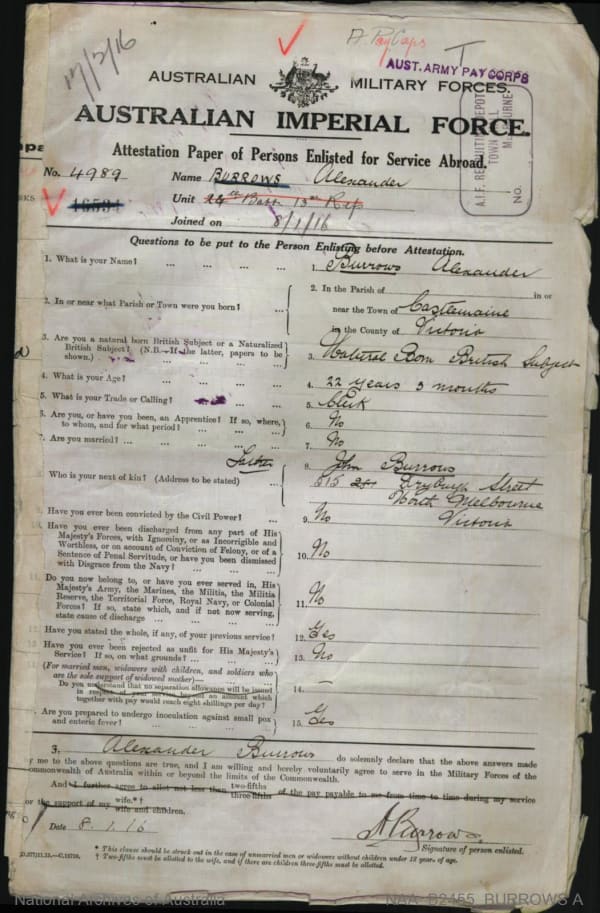 17/2/16
A. Pay Corps
T
AUST. ARMY PAY CORPS
AUSTRALIAN MILITARY FORCES.
AUSTRALIAN IMPERIAL FORCE.
A.I.F. RECRUITING DEPOT
TOWN HALL
MELBOURNE
No.
Attestation Paper of Persons Enlisted for Service Abroad.
No. 4989 Name BURROWS Alexander
Unit 24th Batt 13th Ref
Joined on 8/1/16
Questions to be put to the Person Enlisting before Attestation.
1. What is your Name? ... ... ... ... 1. Burrows Alexander
2. In or near what Parish or Town were you born? ...
2. In the Parish of in or
near the Town of Castlemaine
in the County of Victoria
3. Are you a natural born British Subject or a Naturalized
British Subject? (N.B.—If the latter, papers to be
shown.) ... 3. Natural Born British Subject
4. What is your Age? ... 4. 22 years 3 months
5. What is your Trade or Calling? ... 5. Clerk
6. Are you, or have you been, an Apprentice? If so, where,
to whom, and for what period? ... 6. No
7. Are you married? ... 7. No
Father
Who is your next of kin? (Address to be stated) ...
8. John Burrows
515 Dryburgh Street
North Melbourne
Victoria
9. Have you ever been convicted by the Civil Power? ... 9. No
10. Have you ever been discharged from any part of His
Majesty's Forces, with Ignominy, or as Incorrigible and
Worthless, or on account of Conviction of Felony, or of a
Sentence of Penal Servitude, or have you been dismissed
with Disgrace from the Navy? ... 10. No
Do you now belong to, or have you ever served in, His
Majesty's Army, the Marines, the Militia, the Militia
Reserve, the Territorial Force, Royal Navy, or Colonial
Forces? If so, state which, and if not now serving,
state cause of discharge ... 11. No
Have you stated the whole, if any, of your previous service? 12. Yes
Have you ever been rejected as unfit for His Majesty's
Service? If so, on what grounds? ... 13. No
(For married men, widowers with children, and soldiers who
are the sole support of widowed mother)—
Do you understand that no separation allowance will be issued
in respect of your service beyond an amount which
together with pay would reach eight shillings per day? 14. —
Are you prepared to undergo inoculation against small pox
and enteric fever? ... 15. Yes
I, Alexander Burrows do solemnly declare that the above answers made
by me to the above questions are true, and I am willing and hereby voluntarily agree to serve in the Military Forces of the
Commonwealth of Australia within or beyond the limits of the Commonwealth.
And I further agree to allot not less than two-fifths three-fifths of the pay payable to me from time to time during my service
for the support of my wife.*† wife and children.
Date 8.1.16 A Burrows.
Signature of person enlisted.
* This clause should be struck out in the case of unmarried men or widowers without children under 18 years of age.
† Two-fifths must be allotted to the wife, and if there are children three-fifths must be allotted.
National Archives of Australia NAA: B2455, BURROWS A